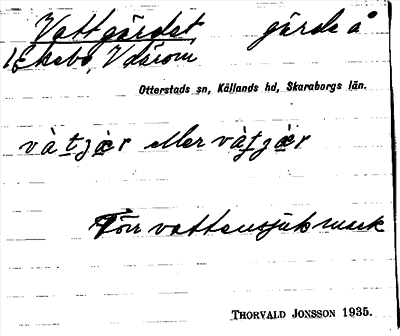 Vattgärdet, gärde å
Ekebo, V därom
Otterstads sn, Källands hd, Skaraborgs län.
vàtgær eller vàtgær
Förr vattensjuk mark
THORVALD JONSSON 1935.